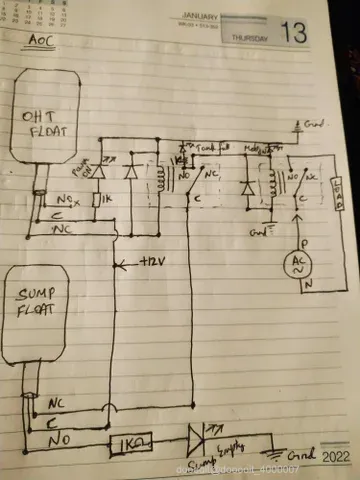 JANUARY
THURSDAY 13
AOC
OHT
FLOAT
Gnd.
Tank full
Power
ON
1K
NO
NC
C
NO
NC
C
NOx
C
NC
1K
Gnd
LOAD
+12V
P
AC
~
N
SUMP
FLOAT
NC
C
NO
1KΩ
Sump
Empty
Gnd
2022